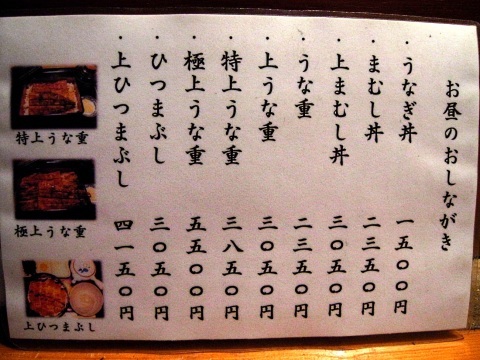 お昼のおしながき
・うなぎ丼 一五〇〇円
・まむし丼 二三五〇円
・上まむし丼 三〇五〇円
・うな重 二三五〇円
・上うな重 三〇五〇円
・特上うな重 三八五〇円
・極上うな重 五五〇〇円
・ひつまぶし 三〇五〇円
・上ひつまぶし 四一五〇円
特上うな重
極上うな重
上ひつまぶし